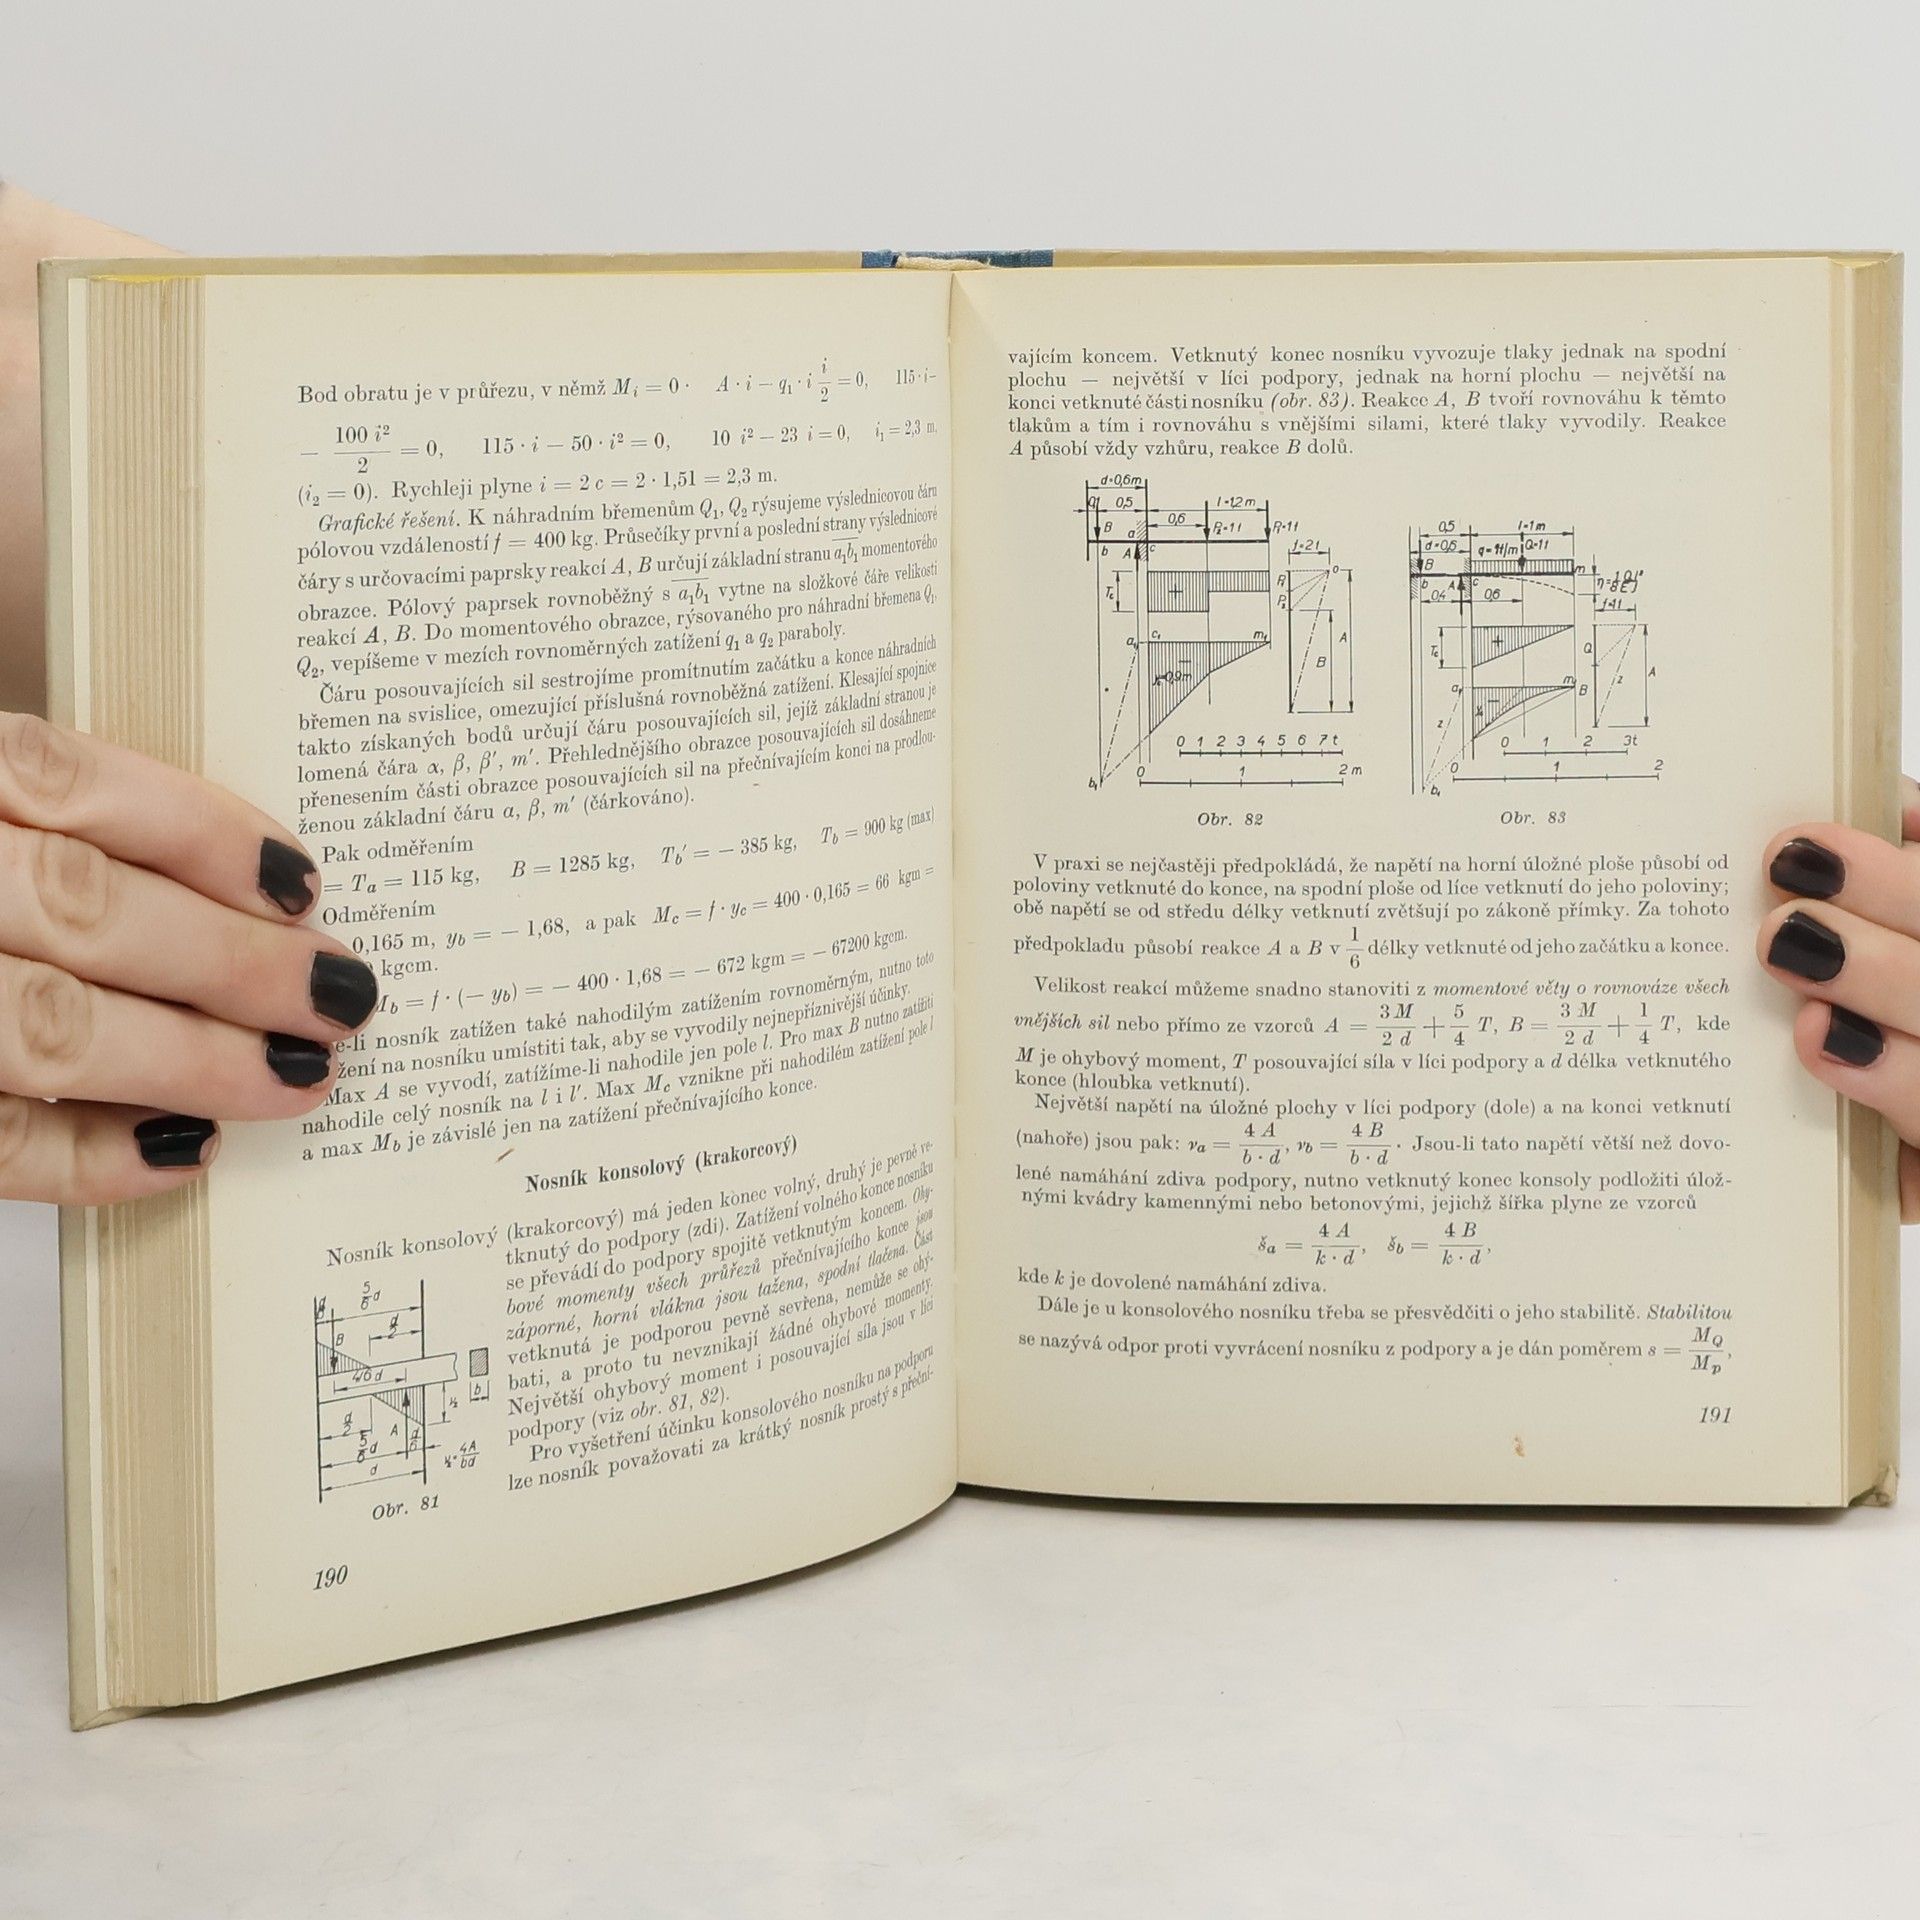 Bod obratu je v průřezu, v němž M_i = 0 · A · i − q_1 · i i/2 = 0, 115 · i −
− 100 i²/2 = 0, 115 · i − 50 · i² = 0, 10 i² − 23 i = 0, i_1 = 2,3 m,
(i_2 = 0). Rychleji plyne i = 2 c = 2 · 1,51 = 2,3 m.
Grafické řešení. K náhradním břemenům Q_1, Q_2 rýsujeme výslednicovou čáru
pólovou vzdáleností f = 400 kg. Průsečíky první a poslední strany výslednicové
čáry s určovacími paprsky reakcí A, B určují základní stranu a_1b_1 momentového
obrazce. Pólový paprsek rovnoběžný s a_1b_1 vytne na složkové čáře velikosti
reakcí A, B. Do momentového obrazce, rýsovaného pro náhradní břemena Q_1,
Q_2, vepíšeme v mezích rovnoměrných zatížení q_1 a q_2 paraboly.
Čáru posouvajících sil sestrojíme promítnutím začátku a konce náhradních
břemen na svislice, omezující příslušná rovnoběžná zatížení. Klesající spojnice
takto získaných bodů určují čáru posouvajících sil, jejíž základní stranou je
lomená čára α, β, β′, m′. Přehlednějšího obrazce posouvajících sil dosáhneme
přenesením části obrazce posouvajících sil na přečnívajícím konci na prodlou-
ženou základní čáru α, β, m′ (čárkováno).
Pak odměřením
= T_a = 115 kg, B = 1285 kg, T_b′ = − 385 kg, T_b = 900 kg (max)
Odměřením
0,165 m, y_b = − 1,68, a pak M_c = f · y_c = 400 · 0,165 = 66 kgm =
kgcm.
M_b = f · (− y_b) = − 400 · 1,68 = − 672 kgm = − 67200 kgcm.
e-li nosník zatížen také nahodilým zatížením rovnoměrným, nutno toto
žení na nosníku umístiti tak, aby se vyvodily nejnepříznivější účinky.
Max A se vyvodí, zatížíme-li nahodile jen pole l. Pro max B nutno zatížiti
nahodile celý nosník na l i l′. Max M_c vznikne při nahodilém zatížení pole l
a max M_b je závislé jen na zatížení přečnívajícího konce.
Nosník konsolový (krakorcový)
Nosník konsolový (krakorcový) má jeden konec volný, druhý je pevně ve-
tknutý do podpory (zdi). Zatížení volného konce nosníku
se převádí do podpory spojitě vetknutým koncem. Ohy-
bové momenty všech průřezů přečnívajícího konce jsou
záporné, horní vlákna jsou tažena, spodní tlačena. Část
vetknutá je podporou pevně sevřena, nemůže se ohý-
bati, a proto tu nevznikají žádné ohybové momenty.
Největší ohybový moment i posouvající síla jsou v líci
podpory (viz obr. 81, 82).
Pro vyšetření účinku konsolového nosníku na podporu
lze nosník považovati za krátký nosník prostý s přeční-
5/6 d
d/2
B
4/6 d
b
d/2
A
5/6 d
d/6
4A/bd
d
Obr. 81
190
vajícím koncem. Vetknutý konec nosníku vyvozuje tlaky jednak na spodní
plochu — největší v líci podpory, jednak na horní plochu — největší na
konci vetknuté části nosníku (obr. 83). Reakce A, B tvoří rovnováhu k těmto
tlakům a tím i rovnováhu s vnějšími silami, které tlaky vyvodily. Reakce
A působí vždy vzhůru, reakce B dolů.
d=0,6m
0,1 0,5 l=1,2m
B a 0,6 P_2=1t P_1=1t
b A c
f=2t
T_c
P_1 o
P_2
A
a_1 c_1 m_1
B
0 1 2 3 4 5 6 7t
0 1 2m
b_1
Obr. 82
0,5 l=1m
d=0,6 q=1t/m Q=1t
B m
b A c
0,4 0,6
f=1t
T_c
Q
A
a_1 m_1 B
z z
0 1 2 3t
0 1 2
b_1
Obr. 83
V praxi se nejčastěji předpokládá, že napětí na horní úložné ploše působí od
poloviny vetknuté do konce, na spodní ploše od líce vetknutí do jeho poloviny;
obě napětí se od středu délky vetknutí zvětšují po zákoně přímky. Za tohoto
předpokladu působí reakce A a B v 1/6 délky vetknuté od jeho začátku a konce.
Velikost reakcí můžeme snadno stanoviti z momentové věty o rovnováze všech
vnějších sil nebo přímo ze vzorců A = 3 M/2 d + 5/4 T, B = 3 M/2 d + 1/4 T, kde
M je ohybový moment, T posouvající síla v líci podpory a d délka vetknutého
konce (hloubka vetknutí).
Největší napětí na úložné plochy v líci podpory (dole) a na konci vetknutí
(nahoře) jsou pak: ν_a = 4 A/b · d, ν_b = 4 B/b · d. Jsou-li tato napětí větší než dovo-
lené namáhání zdiva podpory, nutno vetknutý konec konsoly podložiti úlož-
nými kvádry kamennými nebo betonovými, jejichž šířka plyne ze vzorců
š_a = 4 A/k · d, š_b = 4 B/k · d,
kde k je dovolené namáhání zdiva.
Dále je u konsolového nosníku třeba se přesvědčiti o jeho stabilitě. Stabilitou
se nazývá odpor proti vyvrácení nosníku z podpory a je dán poměrem s = M_Q/M_p,
191